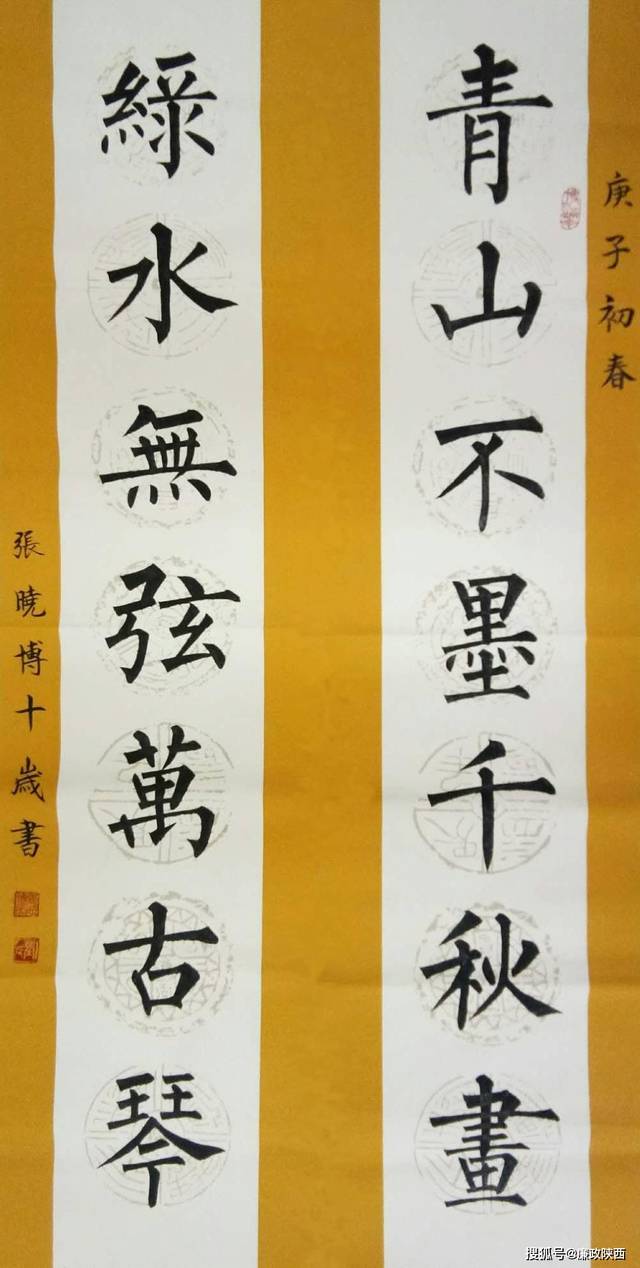 庚子初春
青山不墨千秋畫
綠水無弦萬古琴
張曉博十歲書
搜狐号@廉政陕西